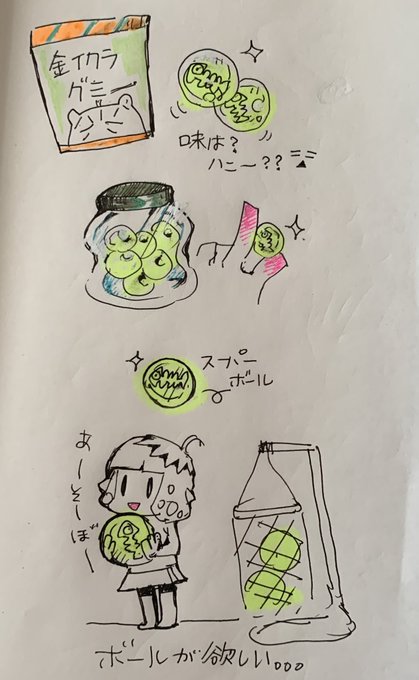 金イカラ
グミー
味は?
ハニー??
スパー
ボール
あーそーぼー
ボールが欲しい。。。